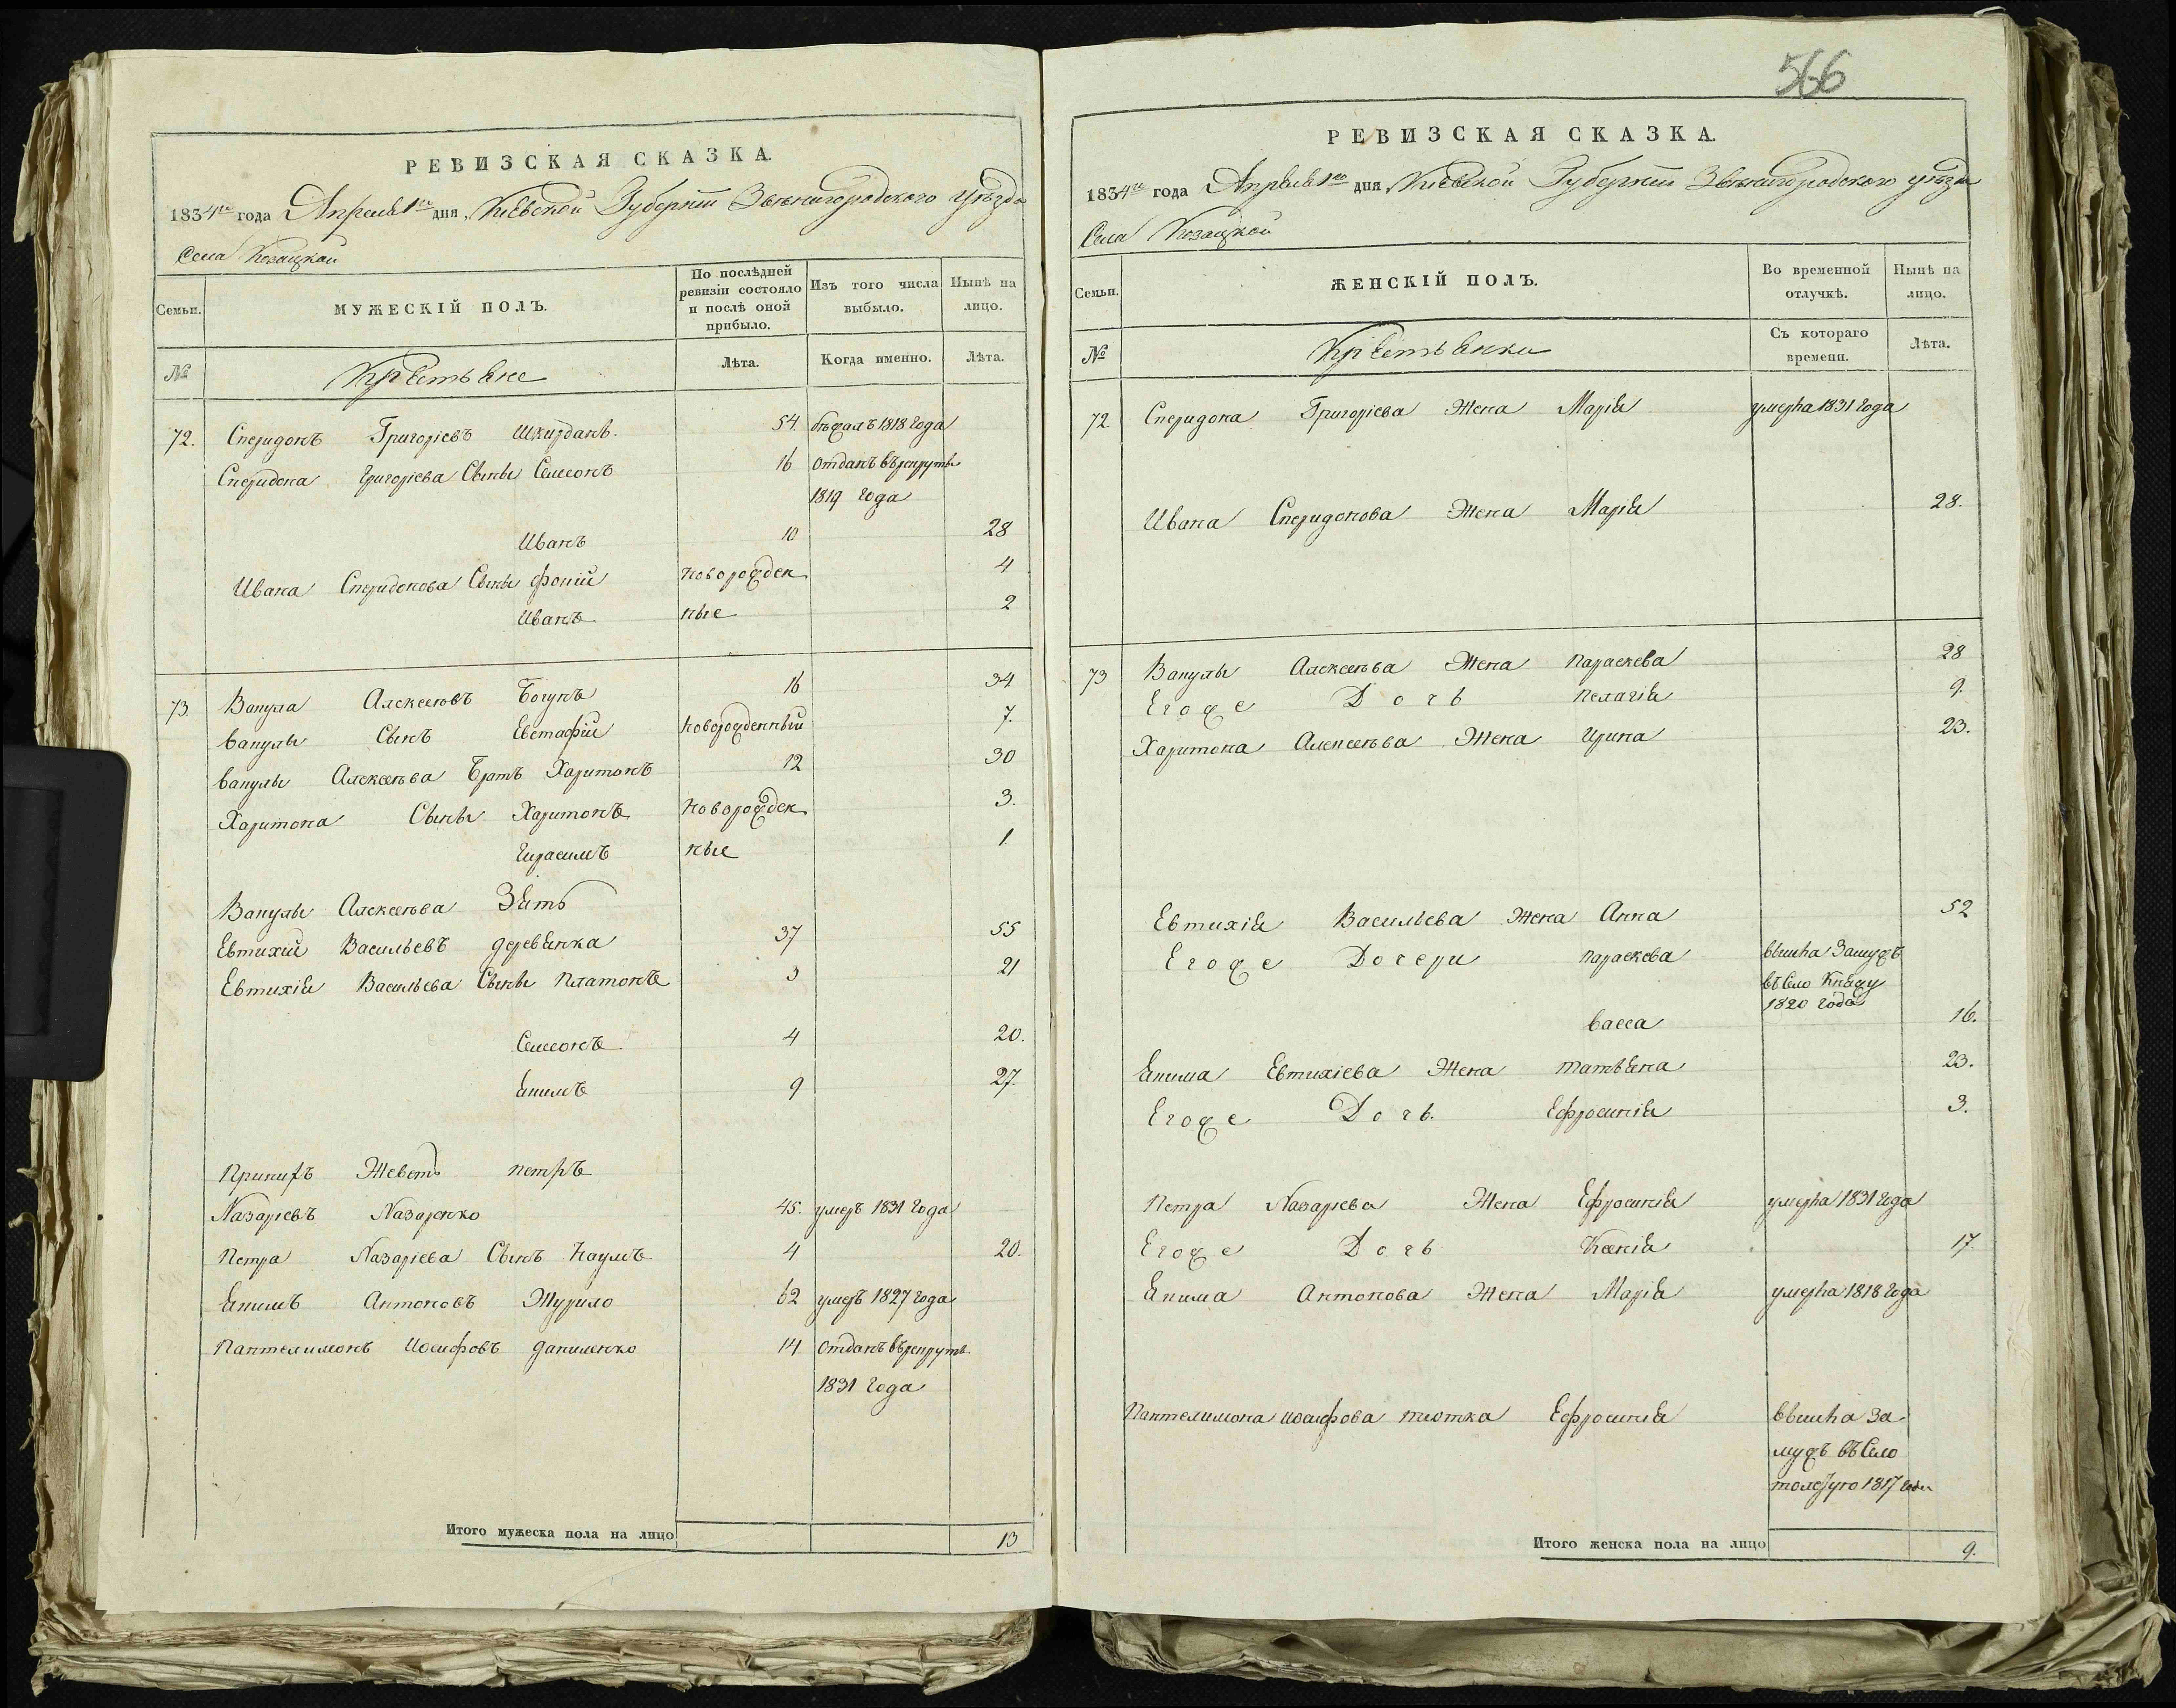 РЕВИЗСКАЯ СКАЗКА.
1834го года Апреля 1го дня, Киевской Губерніи Звенигородского Уѣзда
Села Козацкой
Семьи. МУЖЕСКІЙ ПОЛЪ. По послѣдней ревизіи состояло и послѣ оной прибыло. Изъ того числа выбыло. Нынѣ на лицо.
№ Крестьяне Лѣта. Когда именно. Лѣта.
72. Сперидонъ Григоріевъ Шкурдань. 54. бѣжалъ 1818 года
Сперидона Григоріева Сыны Семеонъ 16 отданъ въ рекруты
1819 года
Иванъ 10 28
Ивана Спередонова Сыны Фоній новорожден 4
Иванъ ные 2
73. Вакула Алексеевъ Богунъ 16 34
Вакулы Сынъ Евстафій новорожденный 7.
Вакулы Алексеева Братъ Харитонъ 12 30
Харитона Сыны Харитонъ новорожден 3.
Герасимъ ные 1
Вакулы Алексеева Зять
Евтихій Васильевъ деревянка 37 55
Евтихія Васильева Сыны Платонъ 3 21
Семеонъ 4 20.
Якимъ 9 27.
Примаръ Жеветъ петръ
Назаріевъ Назаренко 45. умеръ 1831 года
Петра Назаріева Сынъ Наумъ 4 20.
Якимъ Антоновъ Журило 62 умеръ 1827 года
Пантелимонъ Иосифовъ даниленко 14 отданъ въ рекруты
1831 года
Итого мужеска пола на лицо 13
566
РЕВИЗСКАЯ СКАЗКА.
1834го года Апреля 1го дня Киевской Губерніи Звенигородского уѣзда
Села Козацкой
Семьи. ЖЕНСКІЙ ПОЛЪ. Во временной отлучкѣ. Нынѣ на лицо.
№ Крестьянки Съ котораго времени. Лѣта.
72 Сперидона Григоріева Жена Марія умерла 1831 года
Ивана Спередонова Жена Марія 28.
73 Вакулы Алексеева Жена параскева 28
Егоже Дочь пелагія 9.
Харитона Алексеева Жена Ирина 23.
Евтихія Васильева Жена Анна 52
Егоже Дочери параскева вышла Замужъ
въ Село Княжу
1820 года
васса 16.
Якима Евтихіева Жена татьяна 23.
Егоже Дочь. Ефросинія 3.
Петра Назаріева Жена Ефросинія умерла 1831 года
Егоже Дочь Ксенія 17.
Якима Антонова Жена Марія умерла 1818 года
Пантелимона иосифова тиотка Ефросинія вышла за
мужъ въ Село
1817 года
Итого женска пола на лицо 9.